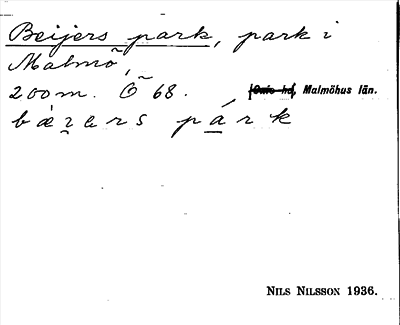 Beijers park, park i
Malmö,
200 m. Ö 68.
Malmöhus län.
bæɀers park
NILS NILSSON 1936.